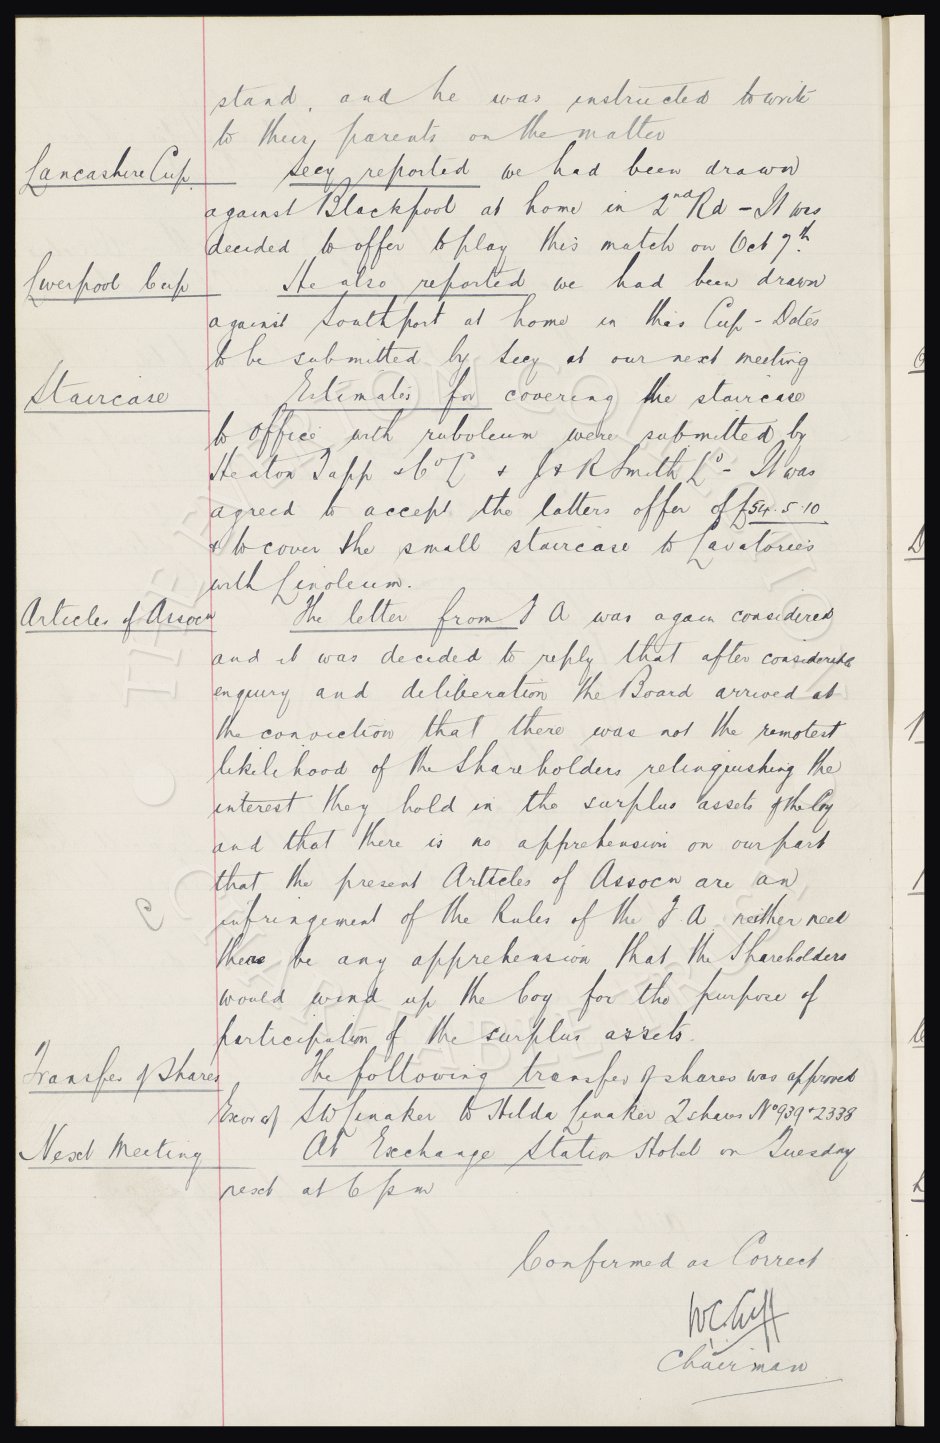 stand, and he was instructed to write
to their parents on the matter
Lancashire Cup. Secy reported we had been drawn
against Blackpool at home in 2nd Rd - It was
decided to offer to play this match on Oct 7th.
Liverpool Cup He also reported we had been drawn
against Southport at home in this Cup - Dates
to be submitted by Secy at our next meeting
Staircase Estimates for covering the staircase
to office with ruboleum were submitted by
Heaton Tapp & Co Ld & J & R Smith Ld - It was
agreed to accept the latters offer of £54.5.10
& to cover the small staircase to Lavatories
with Linoleum.
Articles of Assocn The letter from F A was again considered
and it was decided to reply that after considerable
enquiry and deliberation the Board arrived at
the conviction that there was not the remotest
likelihood of the Shareholders relinquishing the
interest they hold in the surplus assets of the Coy
and that there is no apprehension on our part
that the present Articles of Assocn are an
infringement of the Rules of the F.A. neither need
there be any apprehension that the Shareholders
would wind up the Coy for the purpose of
participation of the surplus assets.
Transfer of Shares The following transfer of shares was approved
Exors of S W Linaker to Hilda Linaker 2 shares No 939 & 2338
Next Meeting At Exchange Station Hotel on Tuesday
next at 6 p m
Confirmed as Correct
W.C. Cuff
Chairman